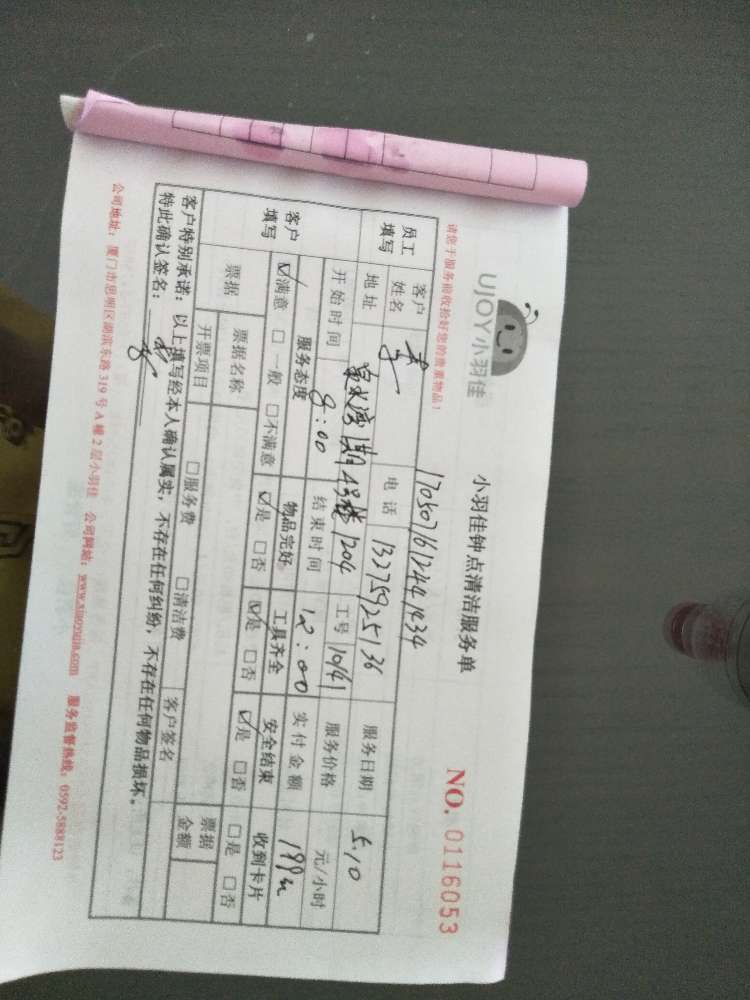 UJOY小羽佳
小羽佳钟点清洁服务单
NO. 0116053
请您于服务前收拾好您的贵重物品!
170507612441434
员工填写 客户姓名 电话 13275925136 服务日期 5.10
地址 泉水湾 期4号楼1204 工号 10141 服务价格 元/小时
开始时间 8:00 结束时间 12:00 实付金额 199
客户填写 服务态度 物品完好 工具齐全 安全结束 收到卡片
☑满意 □一般 □不满意 ☑是 □否 ☑是 □否 ☑是 □否 □是 □否
票据 票据名称 票据金额
开票项目 □服务费 □清洁费 客户签名
客户特别承诺:以上填写经本人确认属实,不存在任何纠纷,不存在任何物品损坏。
特此确认签名:
公司地址:厦门市思明区湖滨东路319号A幢2层小羽佳 公司网站:www.xiaoyujia.com 服务监督热线:0592-5888123